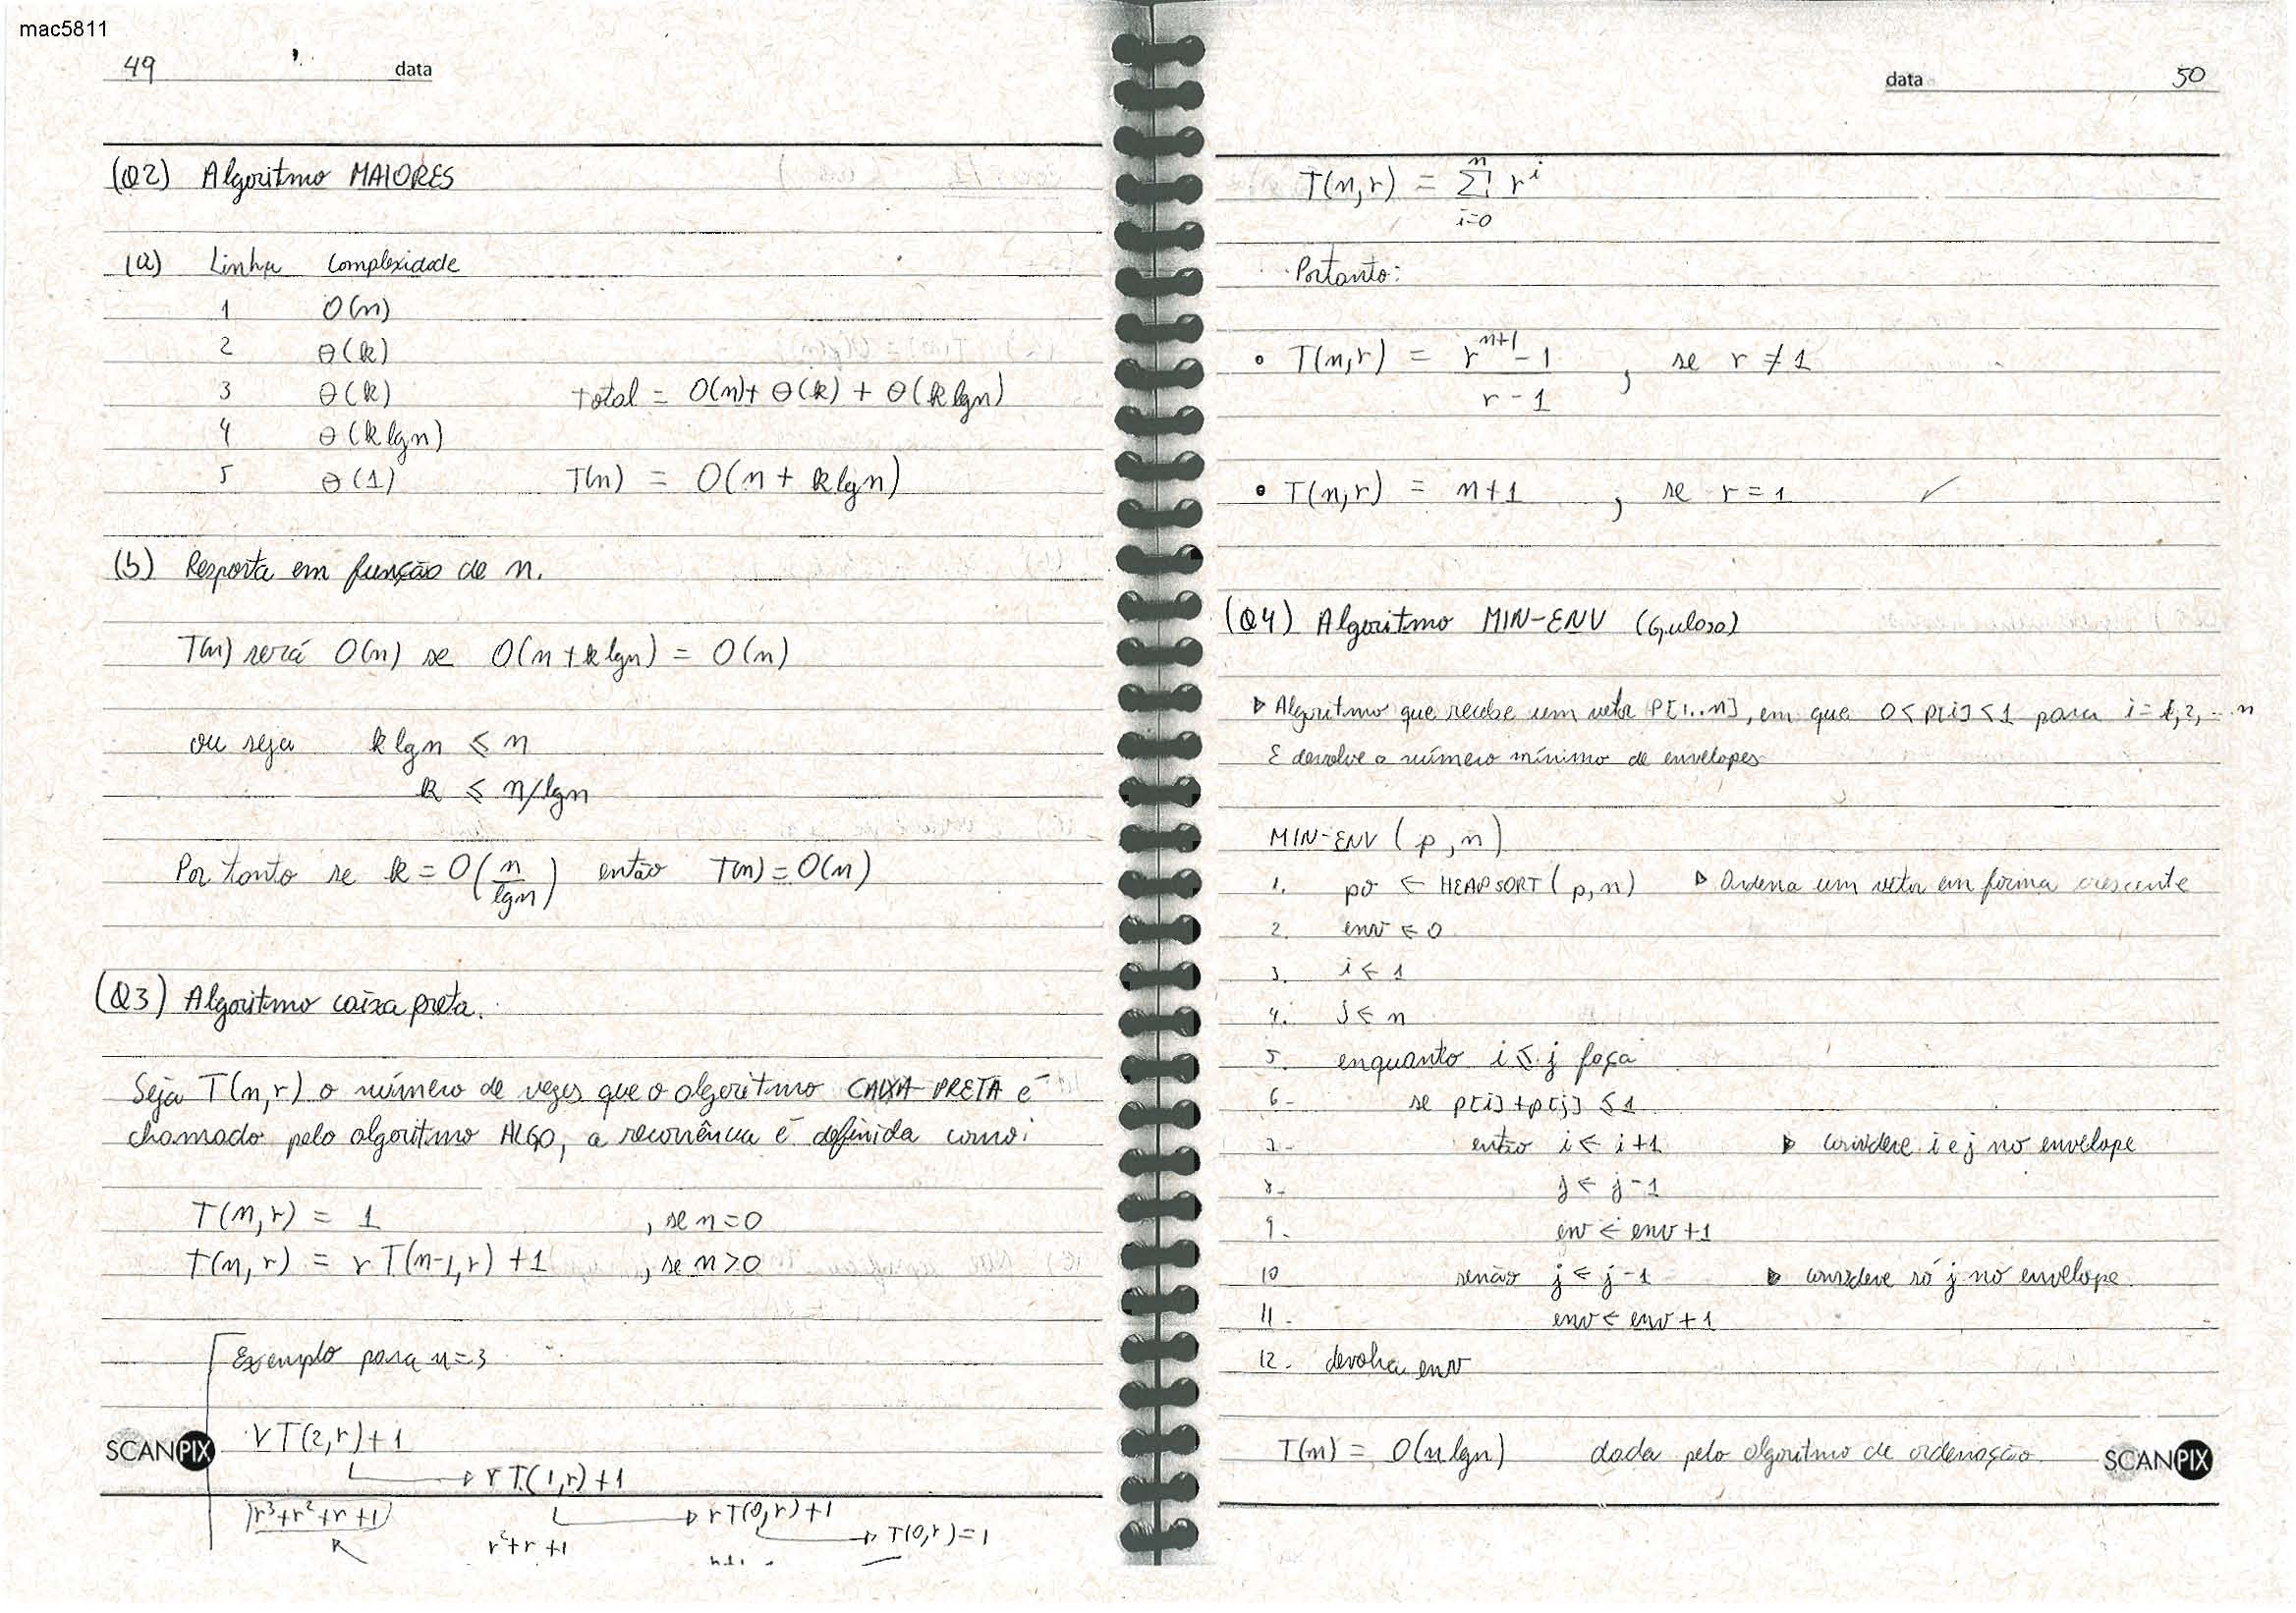 mac5811
49 data
(Q2) Algoritmo MAIORES
(a) Linha Complexidade
1 O(n)
2 θ(k)
3 θ(k) total = O(n) + θ(k) + θ(k lgn)
4 θ(k lgn)
5 θ(1) T(n) = O(n + k lgn)
(b) Resposta em função de n.
T(n) será O(n) se O(n + k lgn) = O(n)
ou seja k lgn ≤ n
k ≤ n/lgn
Por tanto se k = O(n/lgn) então T(n) = O(n)
(Q3) Algoritmo caixa preta.
Seja T(n,r) o número de vezes que o algoritmo CAIXA-PRETA é
chamado pelo algoritmo ALGO, a recorrência é definida como:
T(n,r) = 1 , se n=0
T(n,r) = r T(n-1,r) + 1 , se n>0
Exemplo para n=3
SCANPIX rT(2,r)+1
→ rT(1,r)+1
r³+r²+r+1 → rT(0,r)+1
r²+r+1 → T(0,r)=1
data 50
T(n,r) = Σ_{i=0}^{n} r^i
Portanto:
• T(n,r) = (r^{n+1} - 1)/(r - 1) , se r ≠ 1
• T(n,r) = n+1 , se r = 1 ✓
(Q4) Algoritmo MIN-ENV (Guloso)
▷ Algoritmo que recebe um vetor P[1..n], em que 0 < p[i] < 1 para i = 1,2,...n
E devolve o número mínimo de envelopes
MIN-ENV (p,n)
1. po ← HEAPSORT(p,n) ▷ Ordena um vetor em forma crescente
2. env ← 0
3. i ← 1
4. j ← n
5. enquanto i ≤ j faça
6- se p[i]+p[j] ≤ 1
7- então i ← i+1 ▷ considere i e j no envelope
8- j ← j-1
9- env ← env+1
10 senão j ← j-1 ▷ considere só j no envelope.
11- env ← env+1
12- devolva env
T(n) = O(n lgn) dada pelo algoritmo de ordenação. SCANPIX